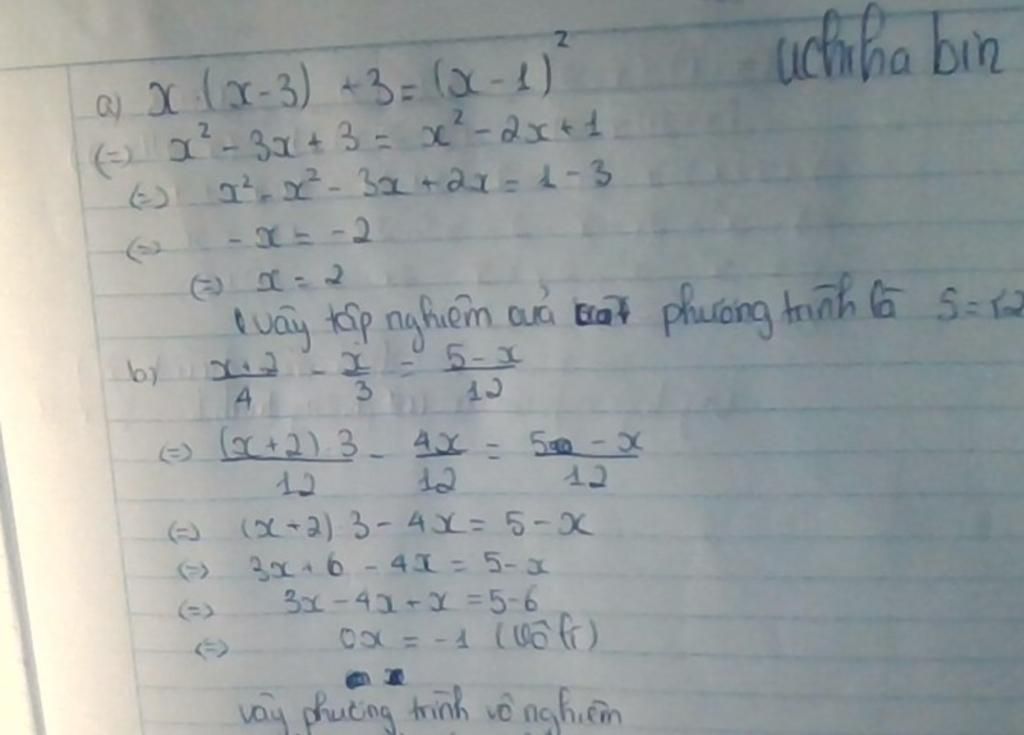 uchiha bin
a) x.(x-3) +3 = (x-1)²
(=) x² - 3x + 3 = x² - 2x + 1
(=) x² - x² - 3x + 2x = 1 - 3
(=) -x = -2
(=) x = 2
vậy tập nghiệm của phương trình là S = {2
b) \frac{x+2}{4} - \frac{x}{3} = \frac{5-x}{12}
(=) \frac{(x+2).3}{12} - \frac{4x}{12} = \frac{5-x}{12}
(=) (x+2).3 - 4x = 5 - x
(=) 3x + 6 - 4x = 5 - x
(=) 3x - 4x + x = 5 - 6
(=) 0x = -1 (vô lí)
vậy phương trình vô nghiệm